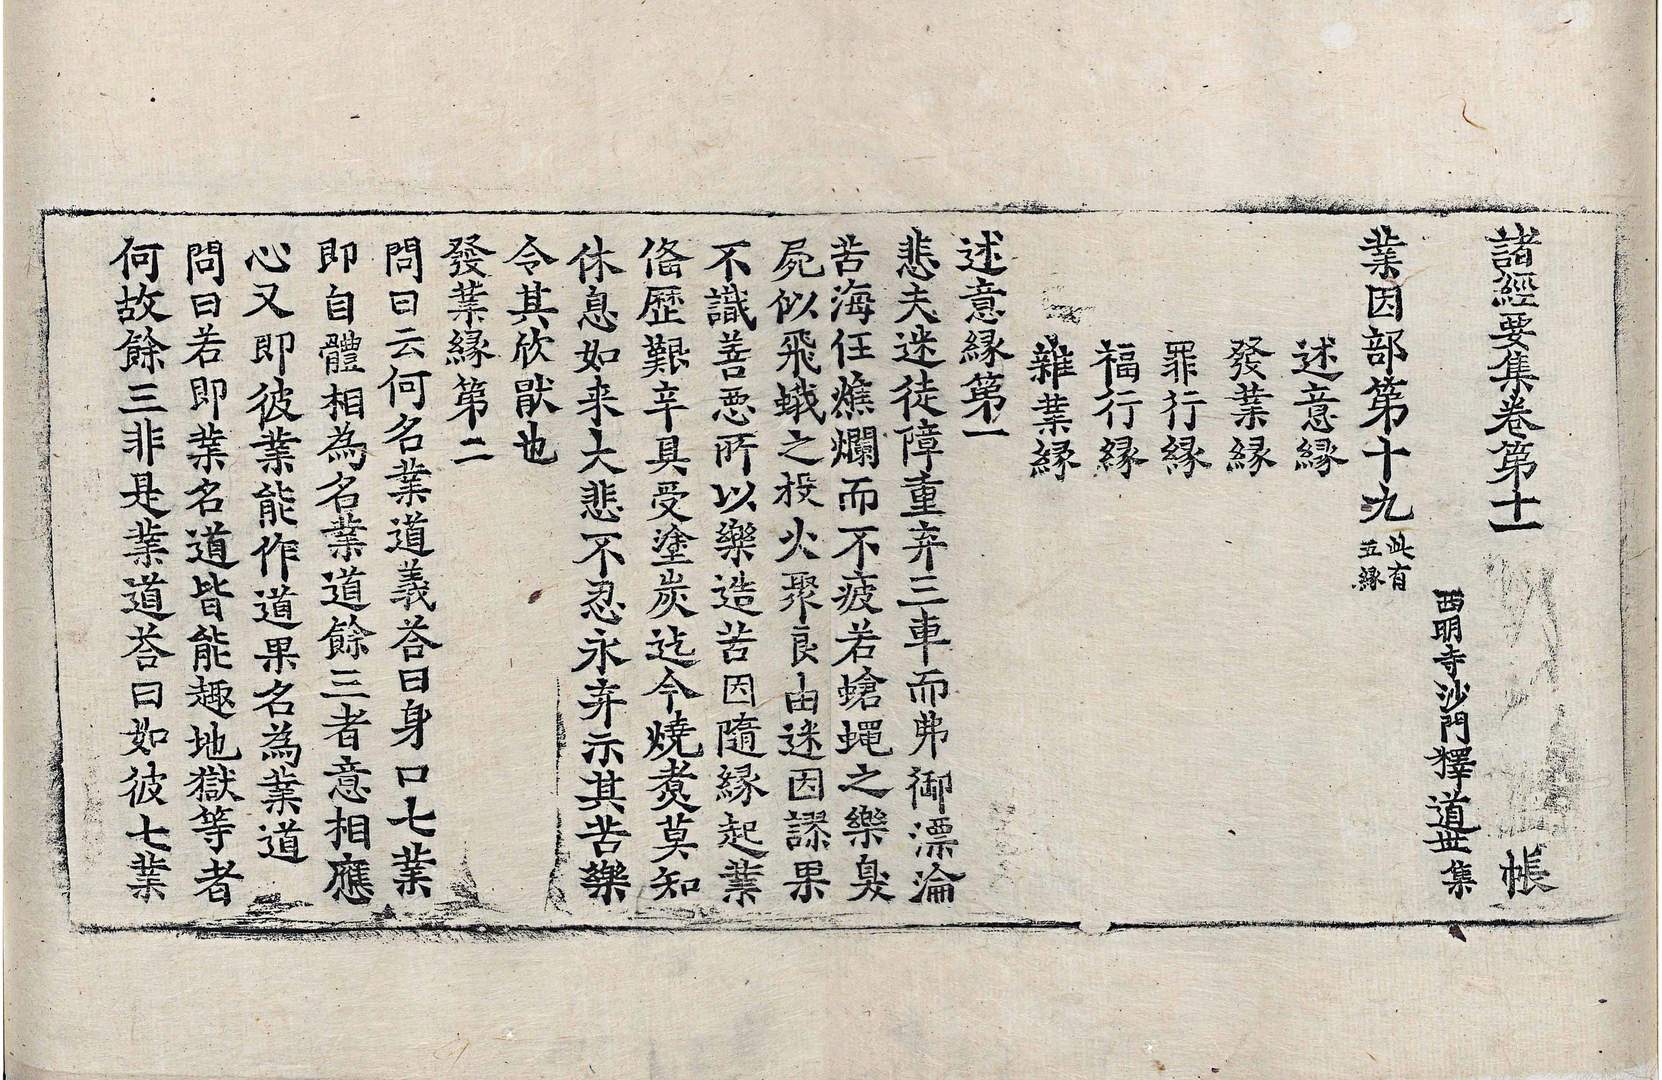 諸經要集卷第十一　帳
西明寺沙門釋道世集
業因部第十九 此有五緣
述意緣
發業緣
罪行緣
福行緣
雜業緣
述意緣第一
悲夫迷徒障重弃三車而弗御漂淪
苦海任燋爛而不疲若蒼蠅之樂臭
屍似飛蛾之投火聚良由迷因謬果
不識善惡所以樂造苦因隨緣起業
俻歷艱辛具受塗炭迄今燒煑莫知
休息如来大悲不忍永弃示其苦樂
令其欣猒也
發業緣第二
問曰云何名業道義荅曰身口七業
即自體相為名業道餘三者意相應
心又即彼業能作道果名為業道
問曰若即業名道皆能趣地獄等者
何故餘三非是業道荅曰如彼七業